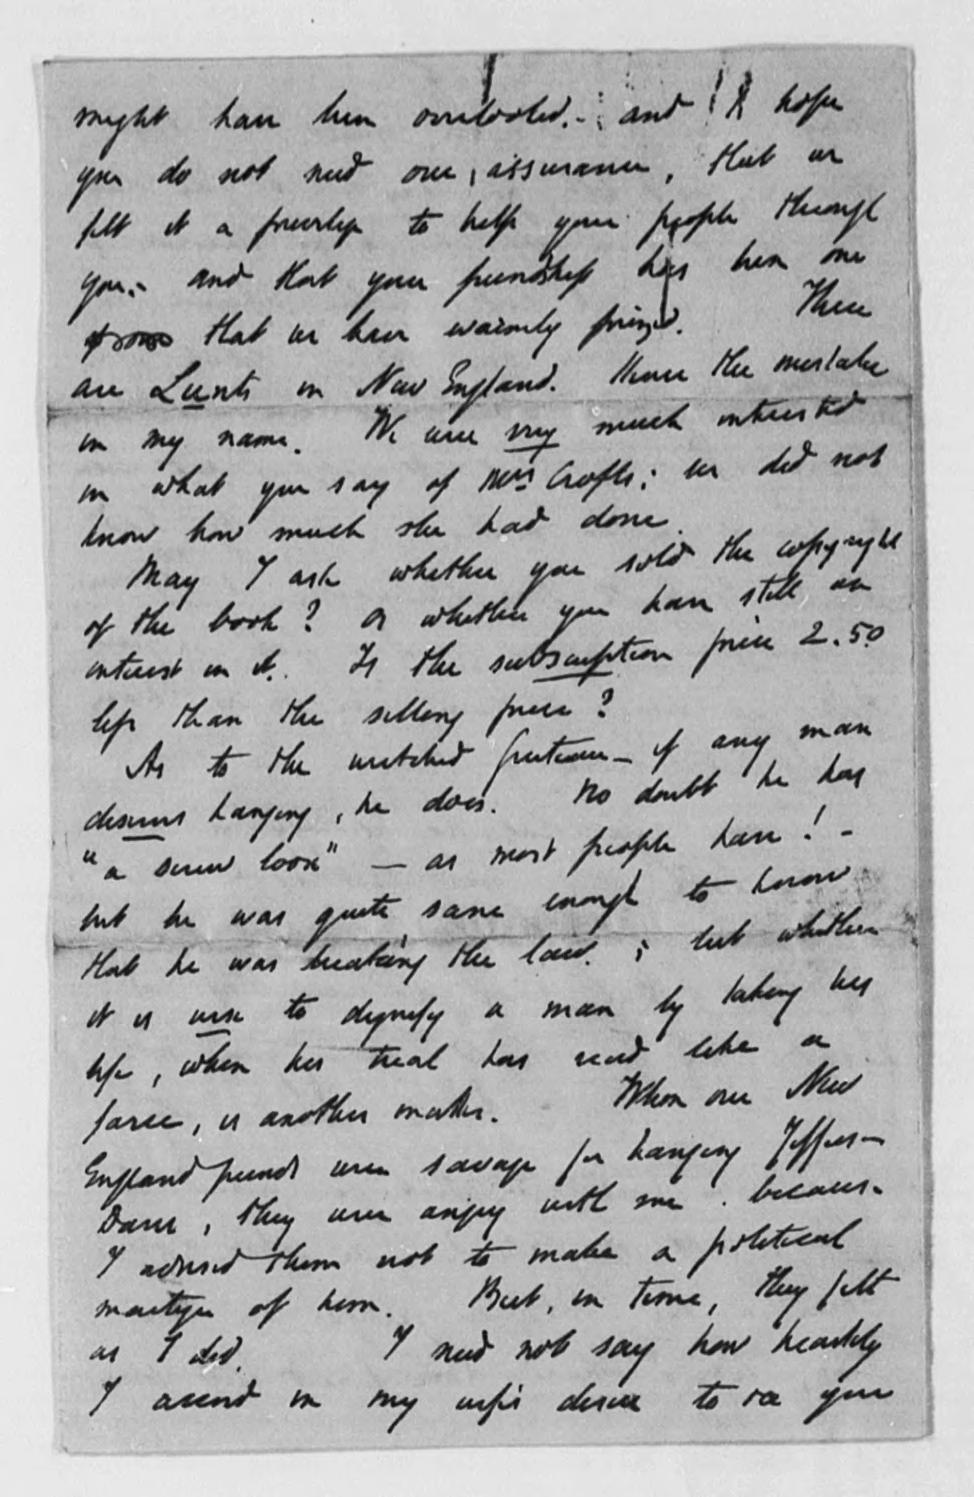 might have been overlooked. - and I hope
you do not need our assurance, that we
felt it a privilege to help your people through
you. - and that your friendship has been one
that we have warmly prized. There
are Lunts in New England. Hence the mistake
in my name. We are very much interested
in what you say of Mrs Crofts: we did not
know how much she had done.
May I ask whether you sold the copyright
of the book? or whether you have still an
interest in it. Is the subscription price 2.50
less than the selling price?
As to the wretched Guiteau - if any man
deserves hanging, he does. No doubt he has
"a screw loose" - as most people have! -
but he was quite sane enough to know
that he was breaking the law. ; but whether
it is wise to dignify a man by taking his
life, when his trial has read like a
farce, is another matter. When our New
England friends were savage for hanging Jefferson
Davis, they were angry with me. because
I advised them not to make a political
martyr of him. But, in time, they felt
as I did. I need not say how heartily
I second in my wife's desire to see you